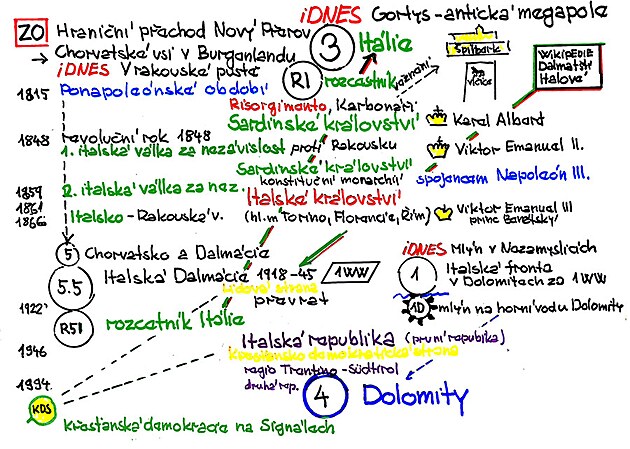 iDNES Gortys - antická megapole
ZO Hraniční přechod Nový Přerov
→ Chorvatské vsi v Burganlandu
iDNES V rakouské pustě
3 Itálie
R1 rozcestník
věznění
Špilberk
WIKIPEDIE
Dalmatští
Italové
1815 Ponapoleónské období
Risorgimanto, Karbonáři
Sardinské království Karel Albert
1848 revoluční rok 1848
1. italská válka za nezávislost proti Rakousku
Viktor Emanuel II.
Sardinské království
konstituční monarchií
spojencem Napoleón III.
1859 2. italská válka za nez.
1861 Italské království
1866 Italsko - Rakouská v.
(hl.m Torino, Florencie, Řím)
Viktor Emanuel III
5 Chorvatsko a Dalmácie
iDNES Mlýn v Nezamyslicích
5.5 Italská Dalmácie 1918-45
1WW
1 Italská fronta
v Dolomitech za 1WW
Lidová strana
převrat
1D mlýn na horní vodu Dolomity
1922
R51 rozcetník Itálie
Italská republika (první republika)
1946
Křesťansko demokratická strana
regio Trentino - Südtirol
druhá rep.
1994
4 Dolomity
KDS
Křesťanská demokracie na Signálech